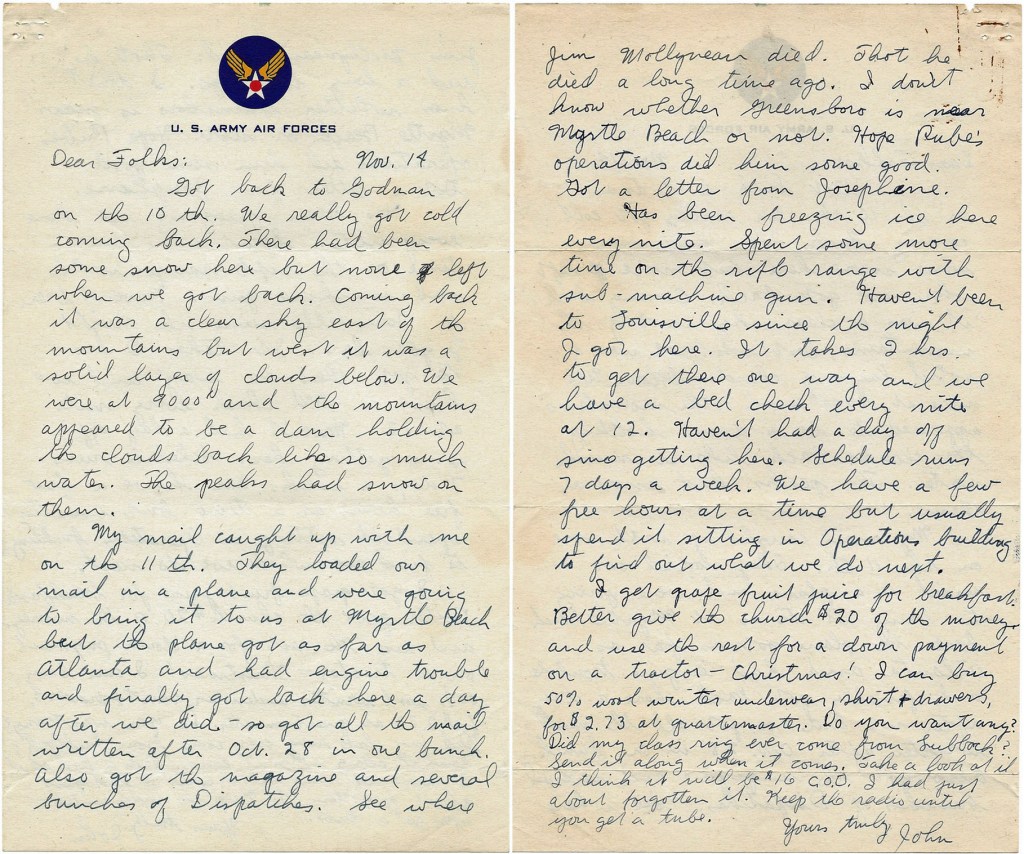 U. S. ARMY AIR FORCES
Dear Folks: Nov. 14
Got back to Godman
on the 10 th. We really got cold
coming back. There had been
some snow here but none left
when we got back. Coming back
it was a clear sky east of the
mountains but west it was a
solid layer of clouds below. We
were at 9000' and the mountains
appeared to be a dam holding
the clouds back like so much
water. The peaks had snow on
them.
My mail caught up with me
on the 11 th. They loaded our
mail in a plane and were going
to bring it to us at Myrtle Beach
but the plane got as far as
Atlanta and had engine trouble
and finally got back here a day
after we did - so got all the mail
written after Oct. 28 in one bunch.
Also got the magazine and several
bunches of Dispatches. See where
Jim Mollyneau died. Thot he
died a long time ago. I don't
know whether Greensboro is near
Myrtle Beach or not. Hope Rube's
operations did him some good.
Got a letter from Josephine.
Has been freezing ice here
every nite. Spent some more
time on the rifle range with
sub-machine gun. Haven't been
to Louisville since the night
I got here. It takes 2 hrs.
to get there one way and we
have a bed check every nite
at 12. Haven't had a day off
since getting here. Schedule runs
7 days a week. We have a few
free hours at a time but usually
spend it sitting in Operations building
to find out what we do next.
I get grape fruit juice for breakfast.
Better give the church $20 of the money
and use the rest for a down payment
on a tractor - Christmas! I can buy
50% wool winter underwear, shirt + drawers,
for $2.73 at quartermaster. Do you want any?
Did my class ring ever come from Lubbock?
Send it along when it comes. Take a look at it
I think it will be $16 C.O.D. I had just
about forgotten it. Keep the radio until
you get a tube.
Yours truly John